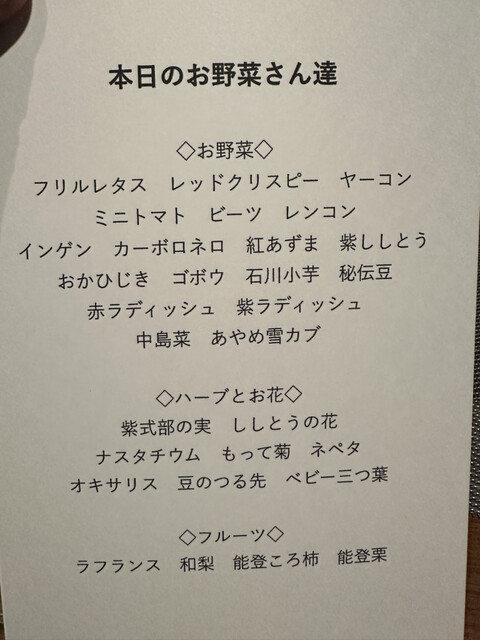 本日のお野菜さん達
◇お野菜◇
フリルレタス　レッドクリスピー　ヤーコン
ミニトマト　ビーツ　レンコン
インゲン　カーボロネロ　紅あずま　紫ししとう
おかひじき　ゴボウ　石川小芋　秘伝豆
赤ラディッシュ　紫ラディッシュ
中島菜　あやめ雪カブ
◇ハーブとお花◇
紫式部の実　ししとうの花
ナスタチウム　もって菊　ネペタ
オキサリス　豆のつる先　ベビー三つ葉
◇フルーツ◇
ラフランス　和梨　能登ころ柿　能登栗